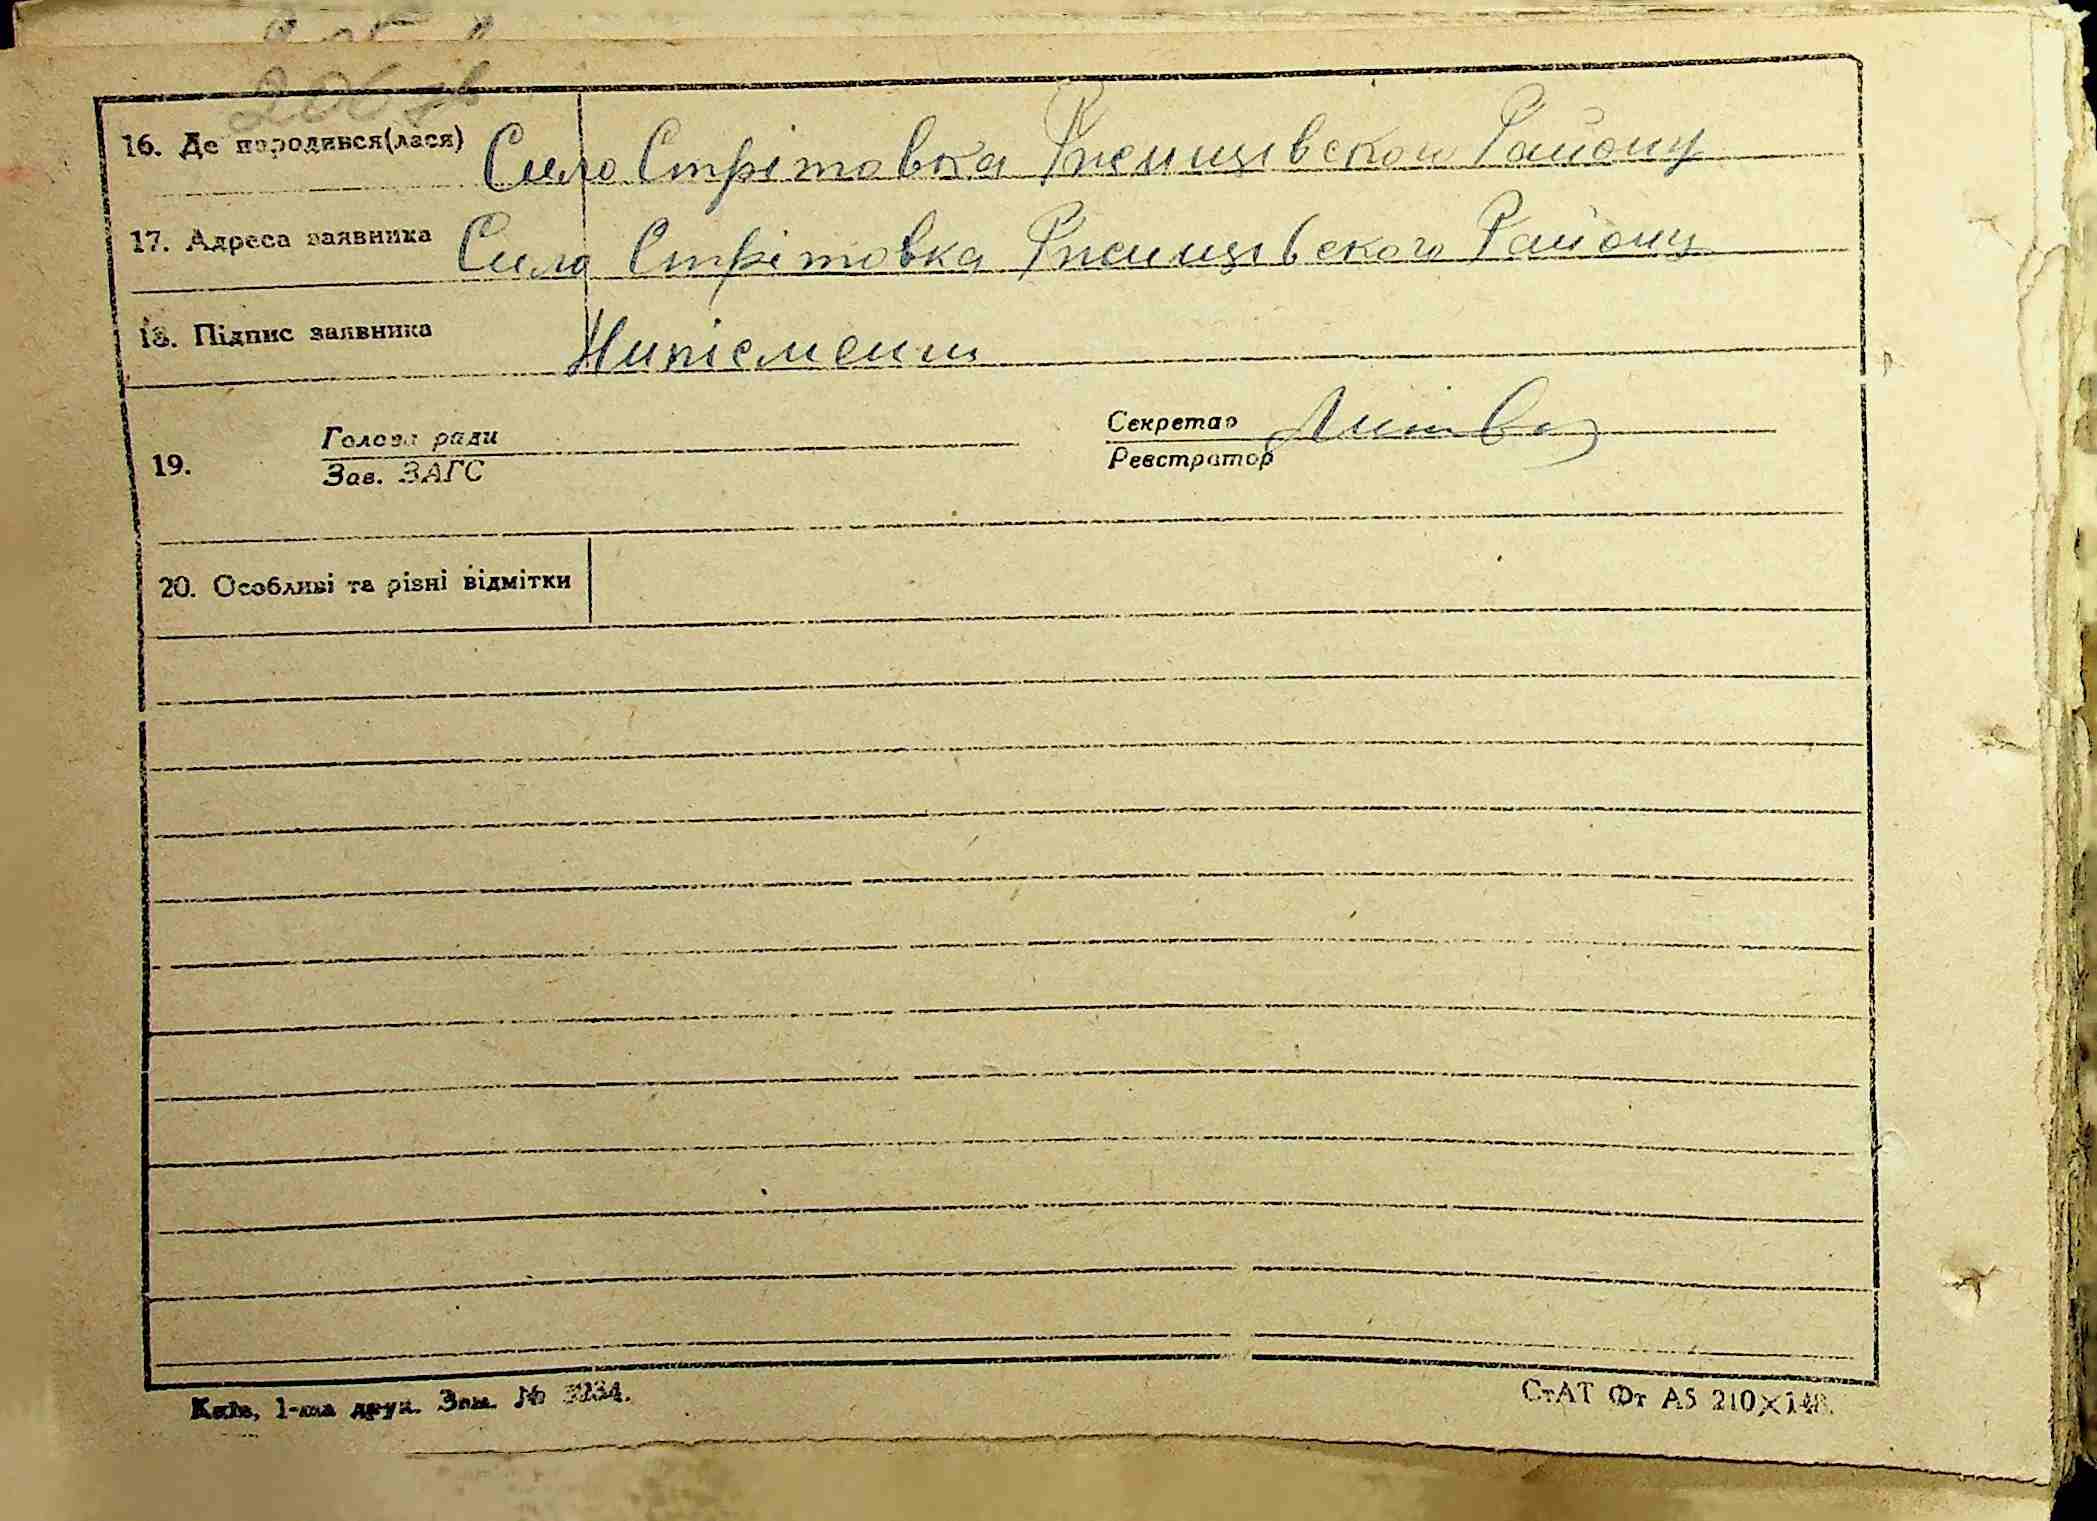 206 зв
16. Де народився(лася) Село Стрітовка Ржищівского Району
17. Адреса заявника Село Стрітовка Ржищівского Району
18. Підпис заявника Нипісмени
Голова ради Секретар
19. Зав. ЗАГС Реєстратор
20. Особливі та різні відмітки
Київ, 1-ша друк. Зам. № 3234.
СтАТ Фт А5 210×148.